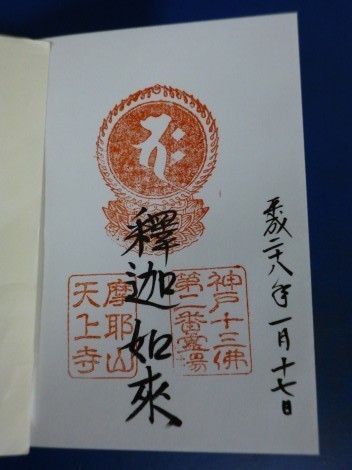 平成二十八年一月十七日
神戸十三佛
第二番霊場
釋迦如來
摩耶山
天上寺